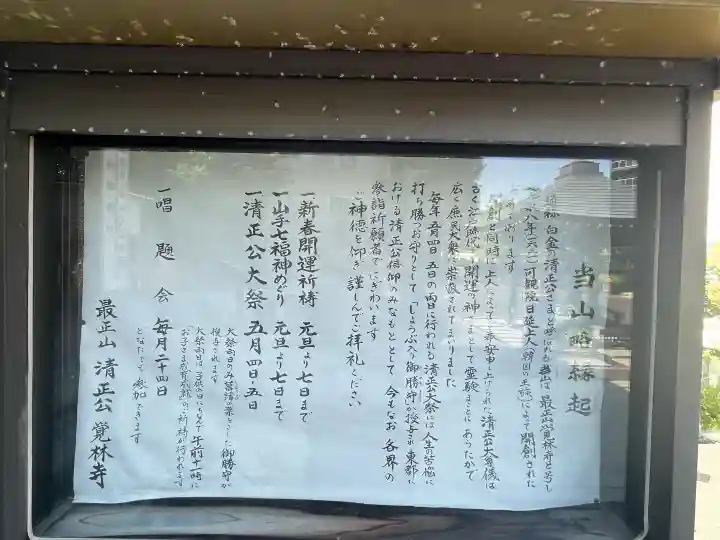 当山略縁起
白金の清正公さまと 当山は 最正山覚林寺と号し
八年(六三一)可観院日延上人(韓国の王族)によって開創された
おります
開創と同時に上人によって奉安申し上げられた 清正公大尊儀は
開運の神さまとして霊験まことにあらたかで
広く庶民大衆に崇敬されてまいりました
毎年 五月四日 五日の両日に行われる清正公大祭には 人生の苦悩に
打ち勝つお守りとして「しょうぶ入り御勝守」が授与され 東都に
おける清正公信仰のみなもととして 今もなお 各界の
参詣祈願者でにぎわいます
ご神徳を仰ぎ 謹しんでご拝礼ください
一新春開運祈祷 元旦より七日まで
一山手七福神めぐり 元旦より七日まで
一清正公大祭 五月四日・五日
大祭両日のみ菖蒲の葉をとした御勝守が
授与されます
大祭両日は子供の日にちなんで 午前十一時に
お子さま成育の祈祷が行われます
一唱題会 毎月二十四日
どなたでも参加できます
最正山 清正公 覚林寺